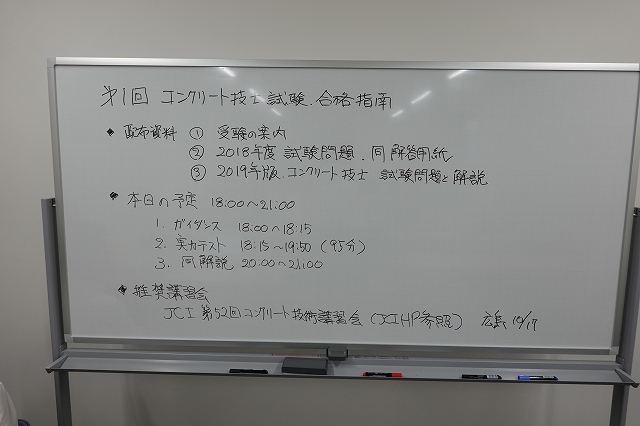 第1回 コンクリート技士試験.合格指南
◆ 配布資料 ① 受験の案内
② 2018年度 試験問題.同解答用紙
③ 2019年版.コンクリート技士 試験問題と解説
◆ 本日の予定 18:00〜21:00
1. ガイダンス 18:00〜18:15
2. 実力テスト 18:15〜19:50 (95分)
3. 同解説 20:00〜21:00
◆ 推奨講習会
JCI 第52回コンクリート技術講習会 (JCIHP参照) 広島